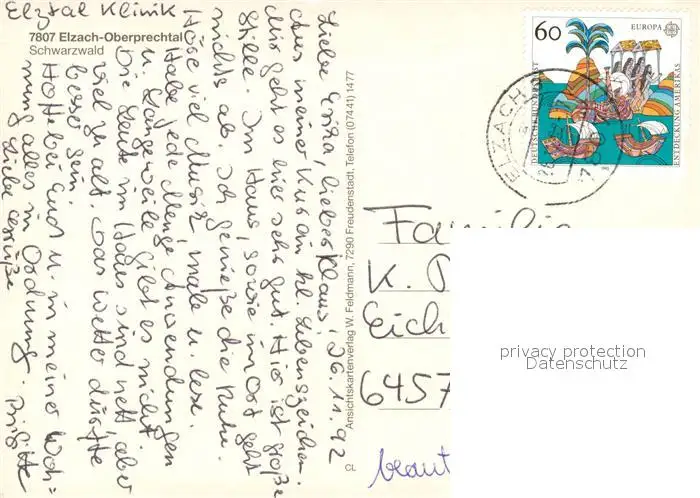 Elztal Klinik
7807 Elzach-Oberprechtal
Schwarzwald
26.11.92
Liebe Erika, lieber Klaus!
Aus meiner Kur ein kl. Lebenszeichen.
Mir geht es hier sehr gut. Hier ist große
Stille. Im Haus, sowie im Ort geht
nichts ab. Ich genieße die Ruhe.
Höre viel Musik, male u. lese.
Habe jede Menge Anwendungen
u. Langeweile gibt es nicht.
Die Leute im Haus sind nett, aber
viel zu alt. Das Wetter dürfte
besser sein.
Hoff bei Euch u. in meiner Woh=
nung alles in Ordnung.
Liebe Grüße Brigitte
Ansichtskartenverlag W. Feldmann, 7290 Freudenstadt, Telefon (07441) 1477
CL
60
EUROPA
DEUTSCHE BUNDESPOST
ENTDECKUNG AMERIKAS
ELZACH
Familie
K.
Eich
6457
privacy protection
Datenschutz